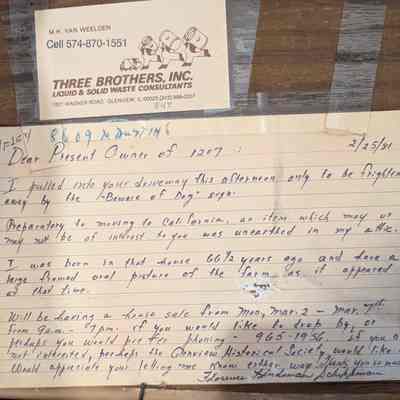 M.H. VAN WEELDEN
Cell 574-870-1551
THREE BROTHERS, INC.
LIQUID & SOLID WASTE CONSULTANTS
WAGNER ROAD, GLENVIEW, IL 60025
847
2/25/81
Dear Present Owner of 1207:
I pulled into your driveway this afternoon, only to be frighten
away by the "Beware of Dog" sign.
Preparatory to moving to California, an item which may or
may not be of interest to you was unearthed in my attic.
I was born in that house 66 1/2 years ago and have a
large framed oval picture of the farm as it appeared
at that time.
Will be having a house sale from Mon, Mar. 2 - Mar.
from 9am - 7pm. if you would like to drop by, or
perhaps you would prefer phoning - 965-1956. If you a
not interested, perhaps the Glenview Historical Society would like
Would appreciate your letting me know either way. Thank you so much
Florence